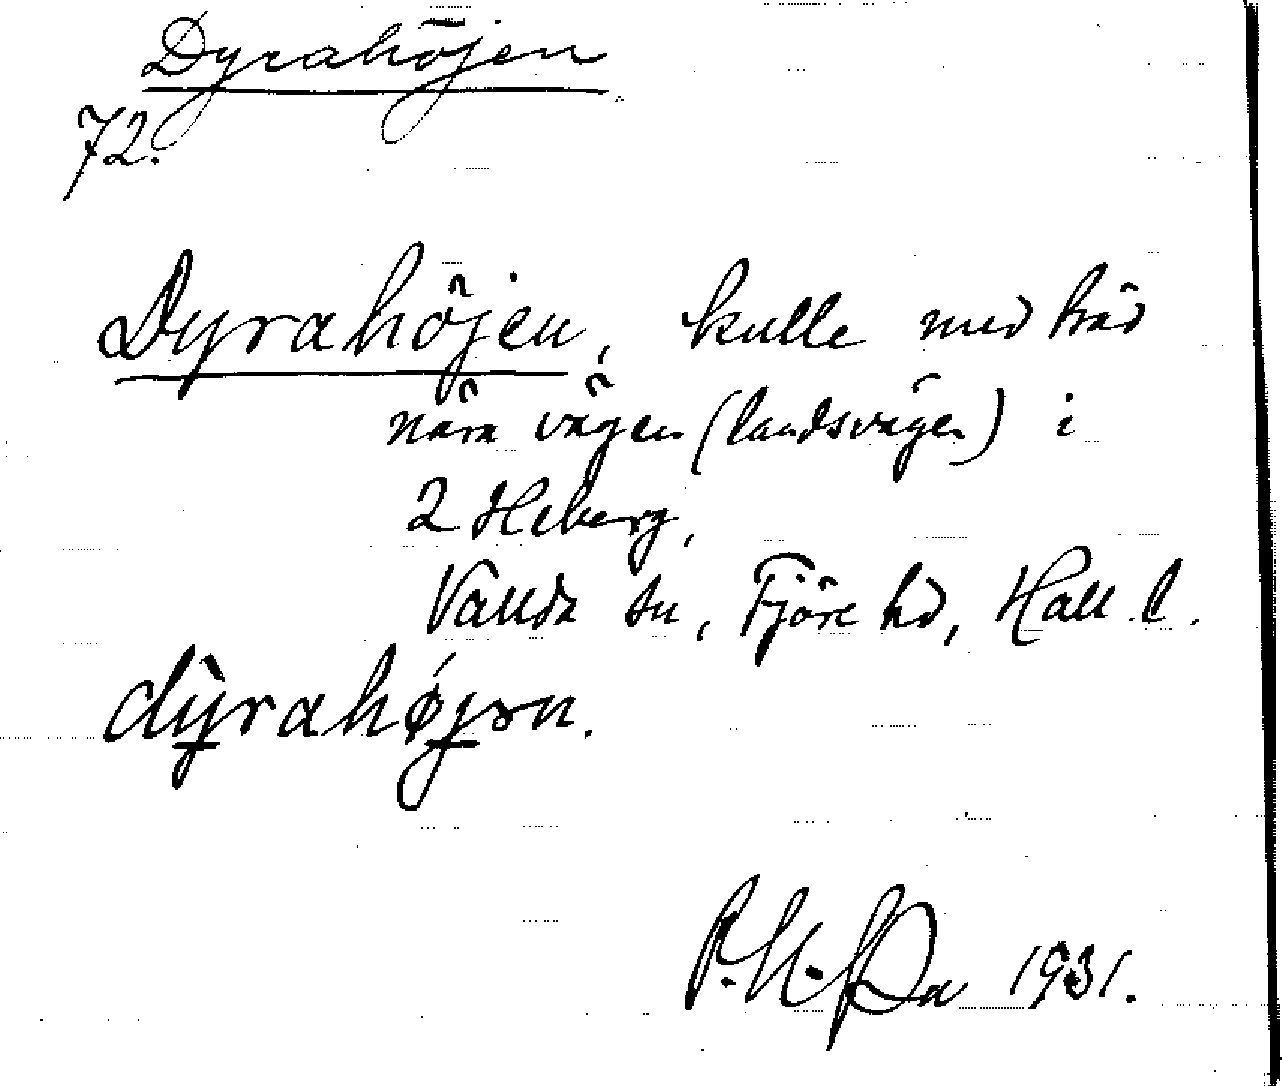 Dyrahöjen
72.
Dyrahöjen, kulle med träd
nära vägen (landsvägen) i
2 Heberg,
Vallda sn, Fjäre hd, Hall. l.
dỳ̲rahøj̲ən.
1931.